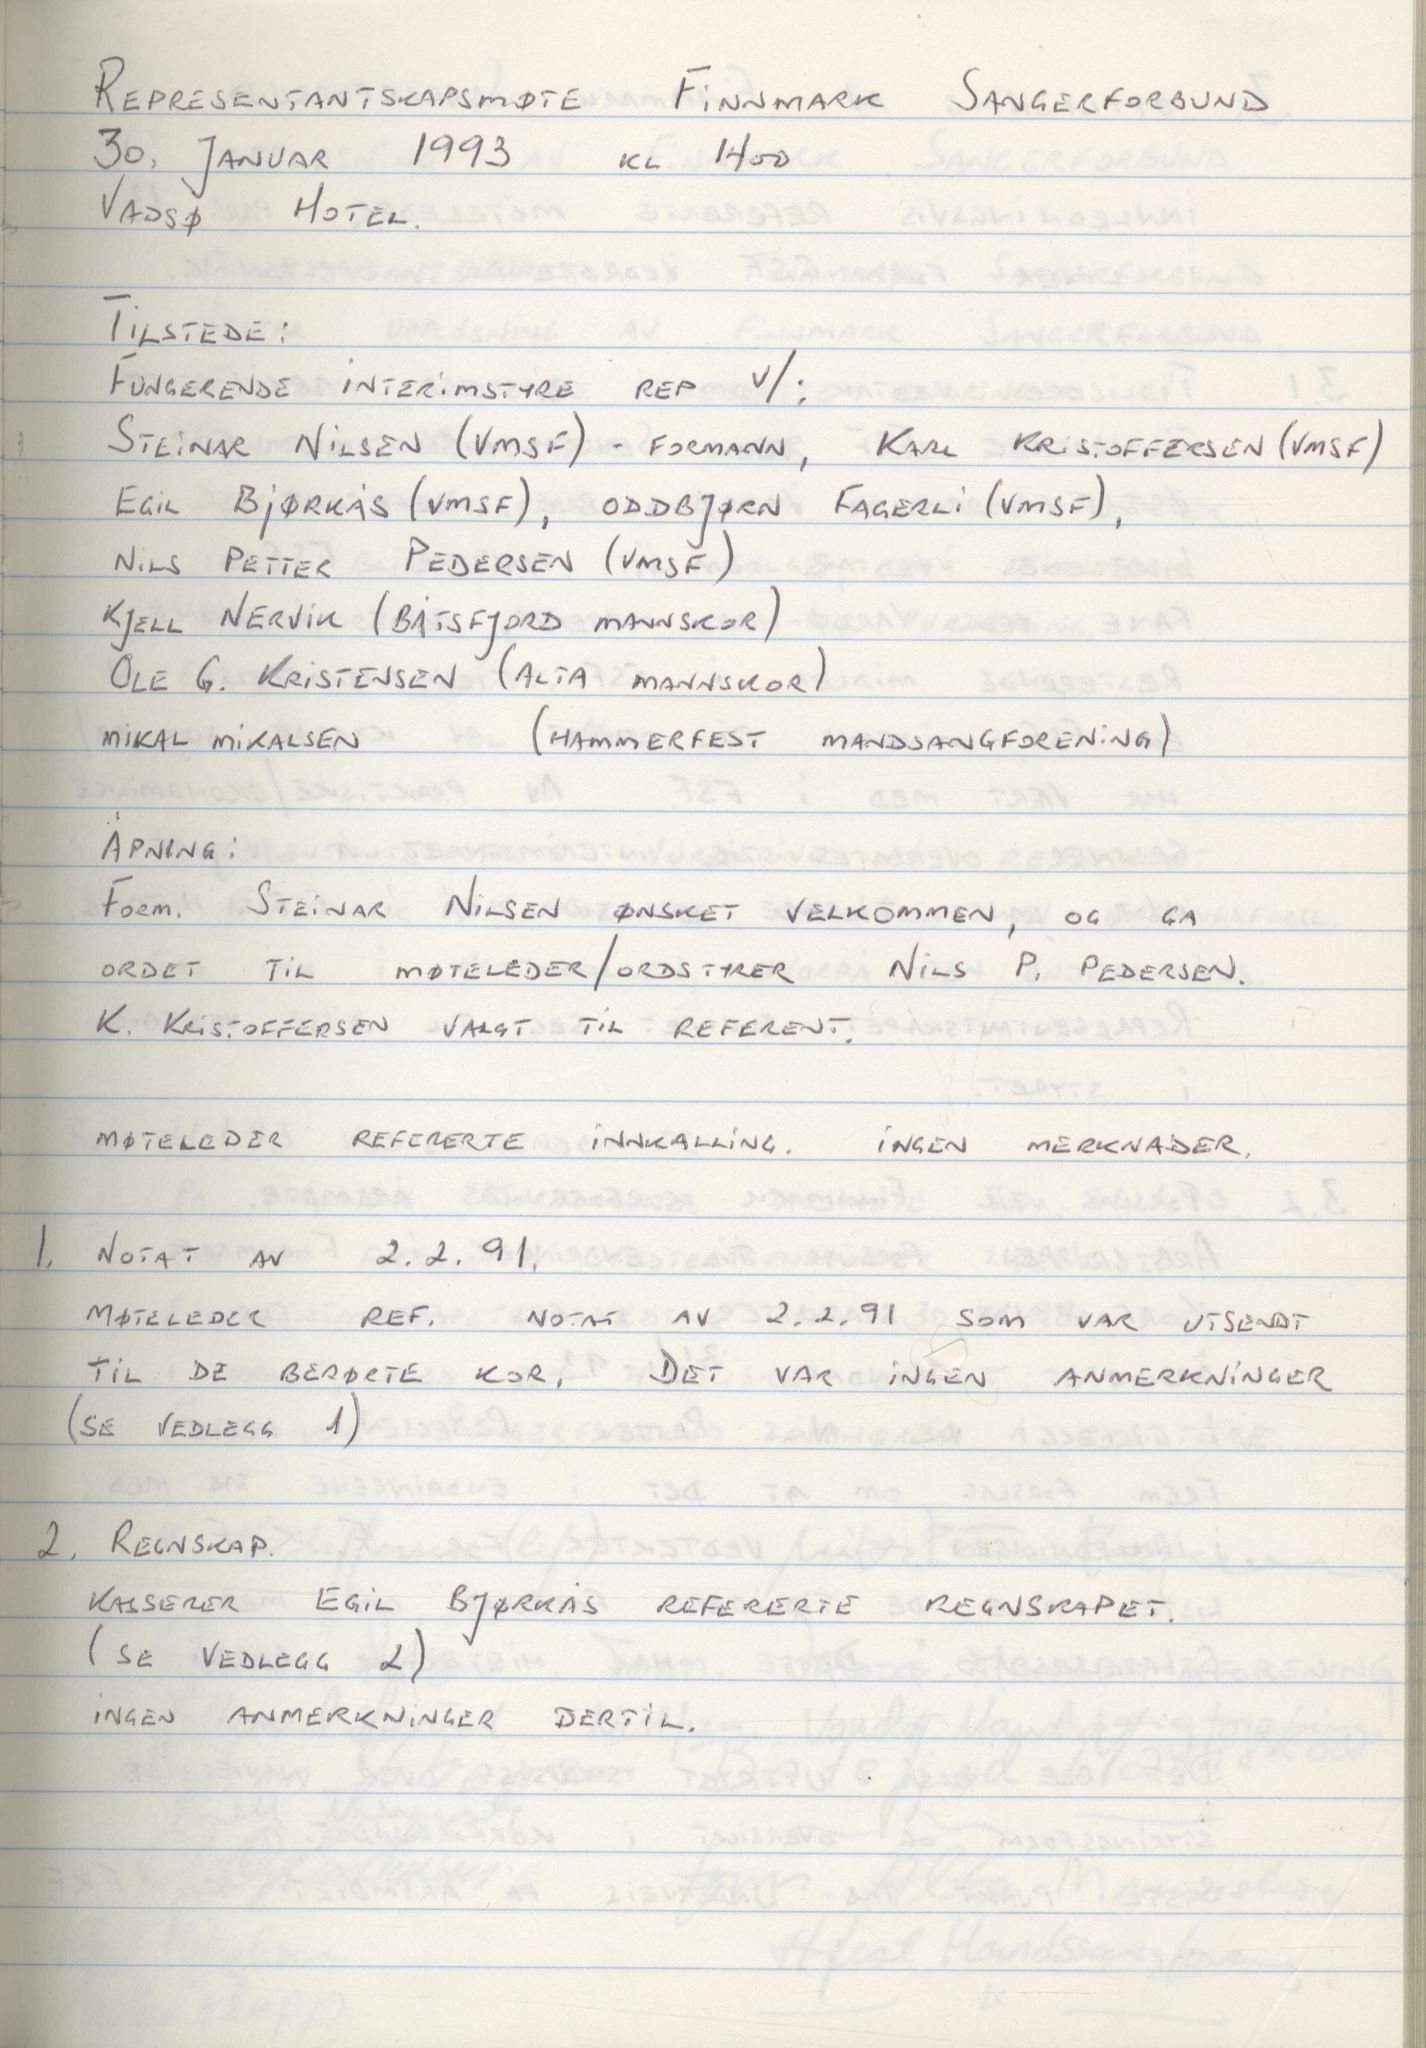 REPRESENTANTSKAPSMØTE FINNMARK SANGERFORBUND
30. JANUAR 1993 KL 1400
VADSØ HOTEL.
TILSTEDE:
FUNGERENDE INTERIMSTYRE REP V/:
STEINAR NILSEN (VMSF) - FORMANN, KARL KRISTOFFERSEN (VMSF)
EGIL BJØRKÅS (VMSF), ODDBJØRN FAGERLI (VMSF),
NILS PETTER PEDERSEN (VMSF)
KJELL NERVIK (BÅTSFJORD MANNSKOR)
OLE G. KRISTENSEN (ALTA MANNSKOR)
MIKAL MIKALSEN (HAMMERFEST MANDSANGFORENING)
ÅPNING:
FORM. STEINAR NILSEN ØNSKET VELKOMMEN, OG GA
ORDET TIL MØTELEDER/ORDSTYRER NILS P. PEDERSEN.
K. KRISTOFFERSEN VALGT TIL REFERENT.
MØTELEDER REFERERTE INNKALLING. INGEN MERKNADER.
1. NOTAT AV 2.2.91.
MØTELEDER REF. NOTAT AV 2.2.91 SOM VAR UTSENDT
TIL DE BERØRTE KOR. DET VAR INGEN ANMERKNINGER
(SE VEDLEGG 1)
2. REGNSKAP.
KASSERER EGIL BJØRKÅS REFERERTE REGNSKAPET.
(SE VEDLEGG 2)
INGEN ANMERKNINGER DERTIL.